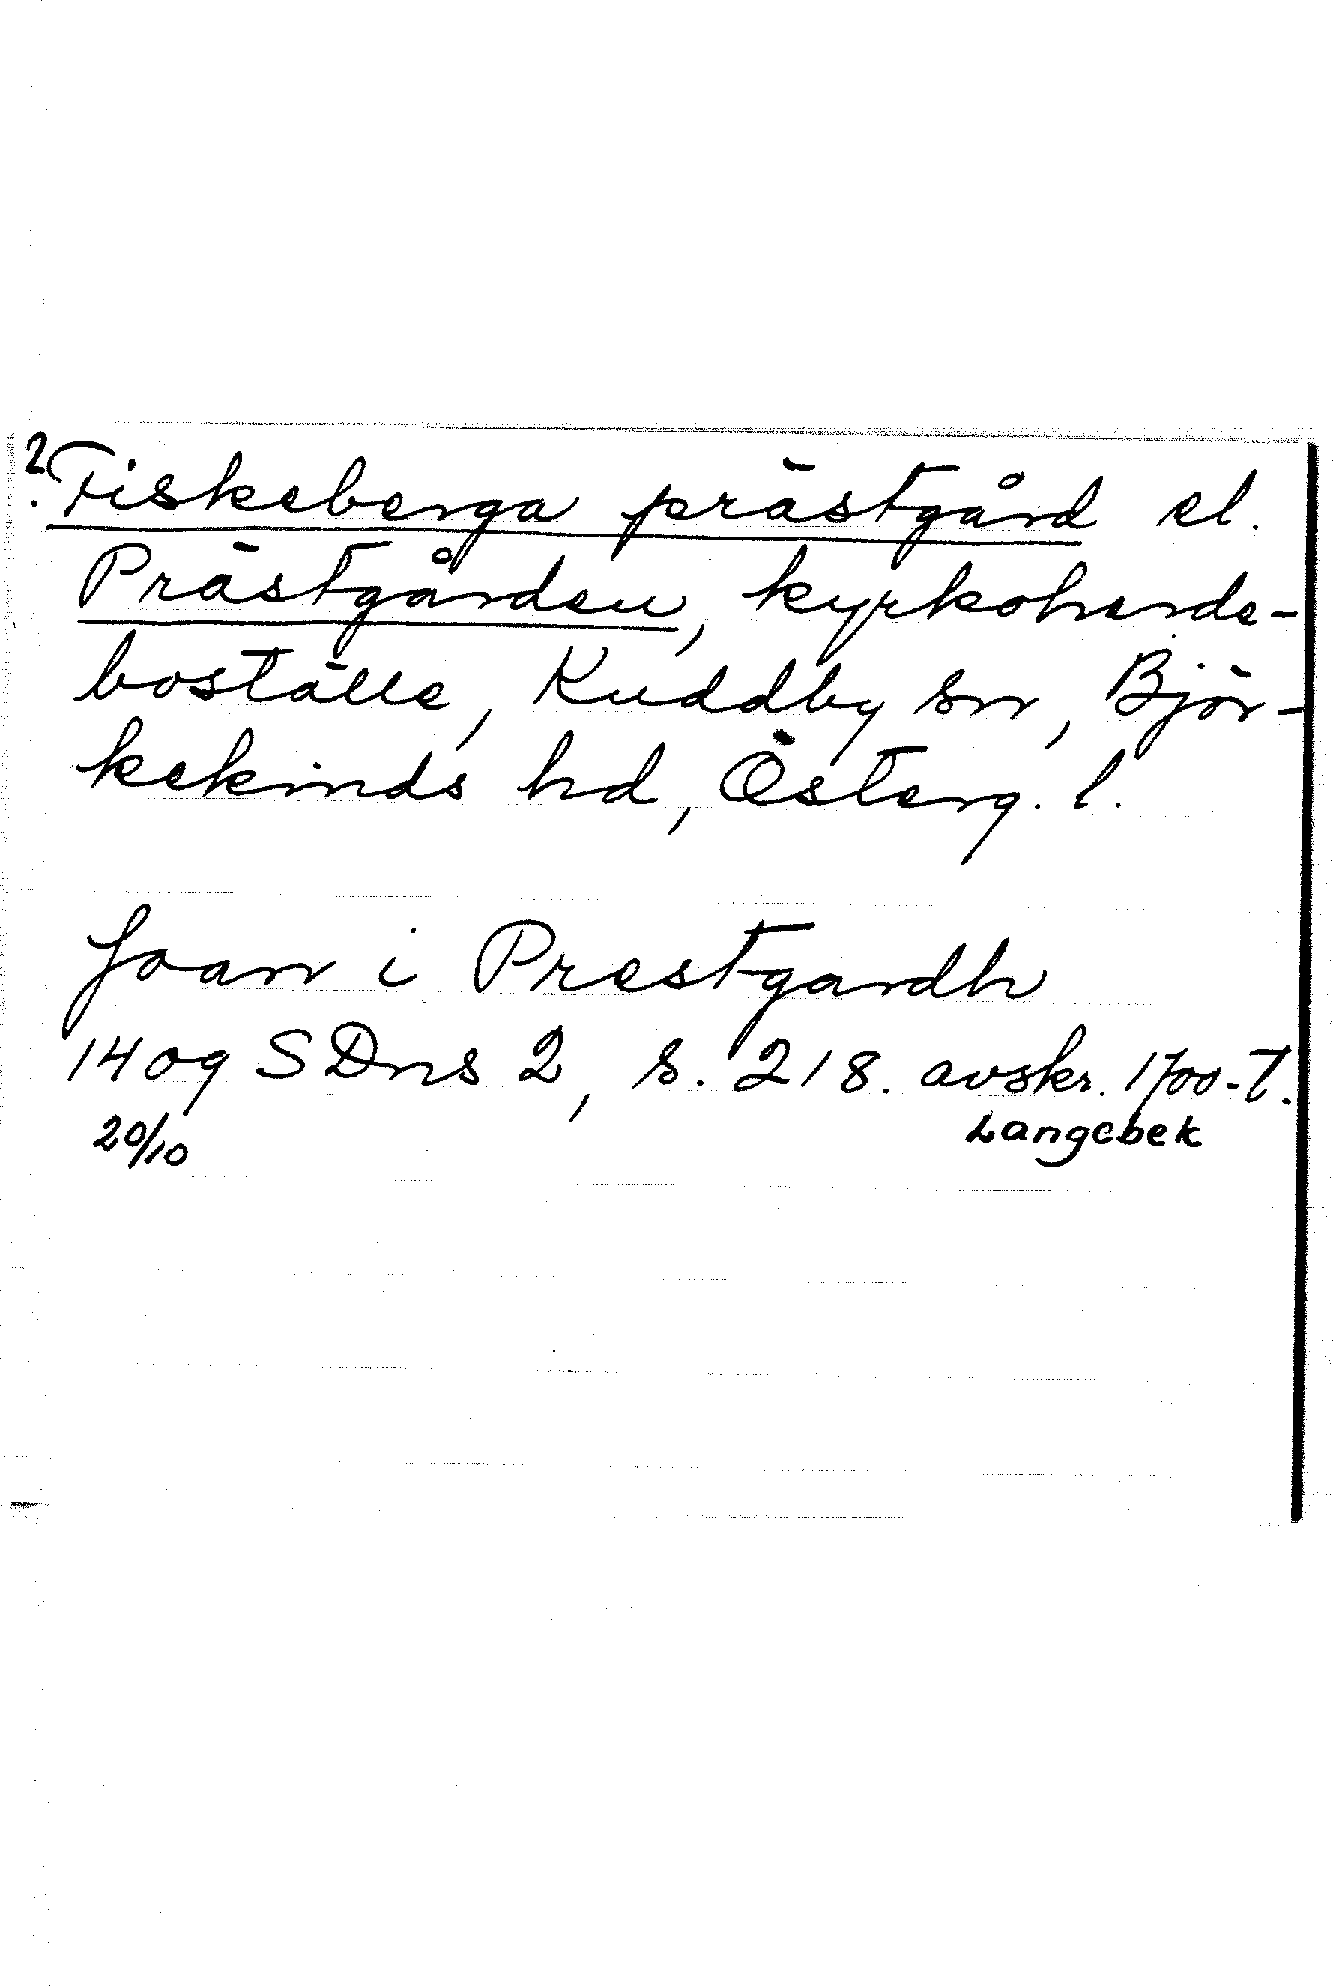 ? Fiskeberga prästgård el.
Prästgården, kyrkoherde-
boställe, Kuddby sn, Björ-
kekinds hd, Österg. l.
Joan i Prestgardh
1409 SDns 2, s. 218. avskr. 1700-t.
20/10 Langebek